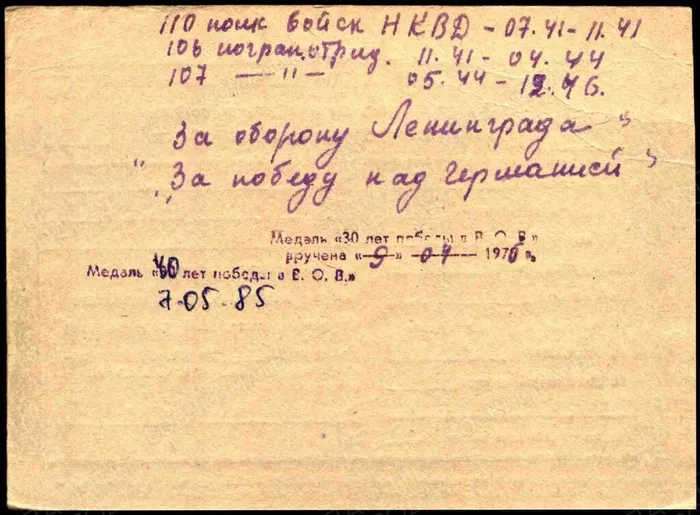 110 полк войск НКВД - 07.41 - 11.41
106 погранотряд. 11.41 - 04.44
107 — 〃 — 05.44 - 12.46.
„За оборону Ленинграда"
„За победу над Германией"
Медаль «30 лет победы в В. О. В.»
вручена «9» 04 1976 г.
Медаль «40 лет победы в В. О. В.»
7.05.85